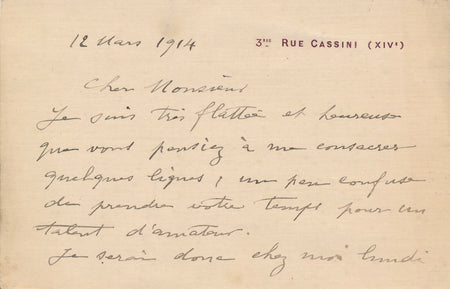 12 Mars 1914
3BIS RUE CASSINI (XIVe)
Cher Monsieur
Je suis très flattée et heureuse
que vous pensiez à me consacrer
quelques lignes ; un peu confuse
de prendre votre temps pour un
talent d'amateur.
Je serai donc chez moi lundi